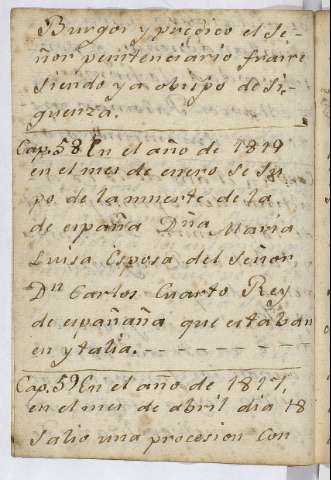 Burgos y predico el Se-
ñor penitenciario fraire
siendo ya obispo de Si-
guenza.
Cap. 58 En el año de 1819
en el mes de enero se Su
po de la muerte de la
de españa Dña María
Luisa Esposa del Señor
Dn Carlos Cuarto Rey
de españaña que estaban
en ytalia.
Cap. 59 En el año de 1817,
en el mes de abril dia 18
Salio una procesion con